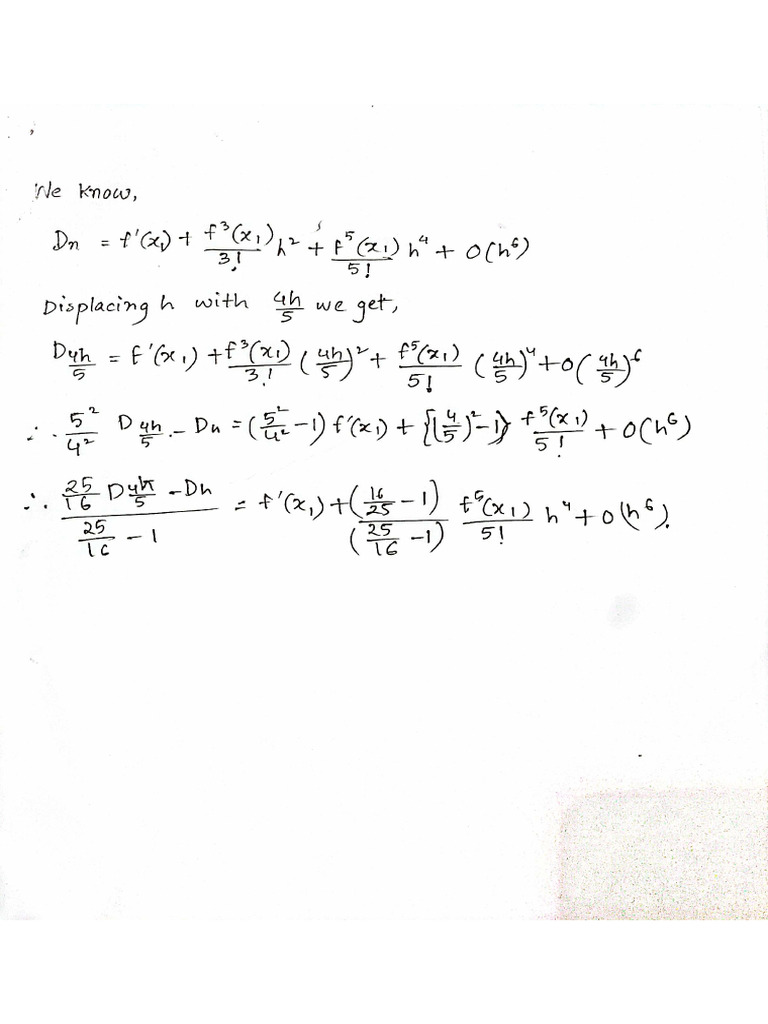 We know,
Dn = f'(x₁) + f³(x₁)/3! h² + f⁵(x₁)/5! h⁴ + O(h⁶)
Displacing h with 4h/5 we get,
D4h/5 = f'(x₁) + f³(x₁)/3! (4h/5)² + f⁵(x₁)/5! (4h/5)⁴ + O(4h/5)⁶
∴ 5²/4² D4h/5 - Dn = (5²/4² - 1) f'(x₁) + {(4/5)² - 1} f⁵(x₁)/5! + O(h⁶)
∴ (25/16 D4h/5 - Dh)/(25/16 - 1) = f'(x₁) + (16/25 - 1)/(25/16 - 1) f⁵(x₁)/5! h⁴ + O(h⁶).